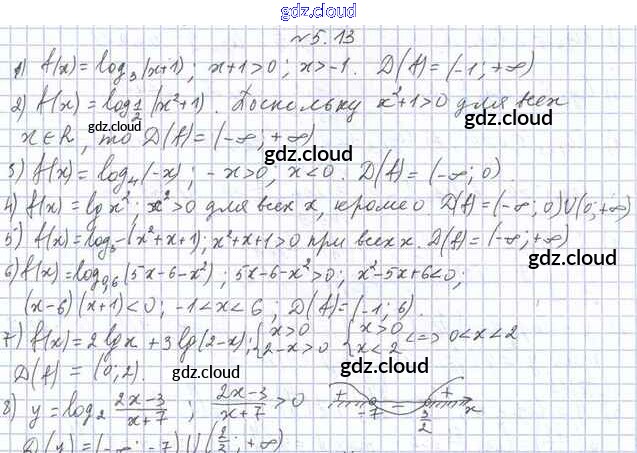 gdz.cloud
№5.13
1) f(x)=log₃(x+1); x+1>0; x>-1. D(f)=(-1;+∞)
gdz.cloud
2) f(x)=log_{1/2}(x²+1). Поскольку x²+1>0 для всех
x∈R, то D(f)=(-∞;+∞)
gdz.cloud
gdz.cloud
gdz.cloud
3) f(x)=log₄(-x); -x>0, x<0. D(f)=(-∞;0).
4) f(x)=lgx²; x²>0 для всех x, кроме 0 D(f)=(-∞;0)∪(0;+∞)
5) f(x)=log₃(x²+x+1); x²+x+1>0 при всех x. D(f)=(-∞;+∞)
gdz.cloud
6) f(x)=log_{0,6}(5x-6-x²); 5x-6-x²>0; x²-5x+6<0;
gdz.cloud
(x-6)(x+1)<0; -1<x<6; D(f)=(-1;6).
7) f(x)=2lgx+3lg(2-x); {x>0 2-x>0 {x>0 x<2 <=> 0<x<2
gdz.cloud
D(f)=(0;2).
gdz.cloud
8) y=log₂ (2x-3)/(x+7); (2x-3)/(x+7)>0 + -7 - 3/2 + x
D(y)=(-∞;-7)∪(3/2;+∞)
gdz.cloud
gdz.cloud